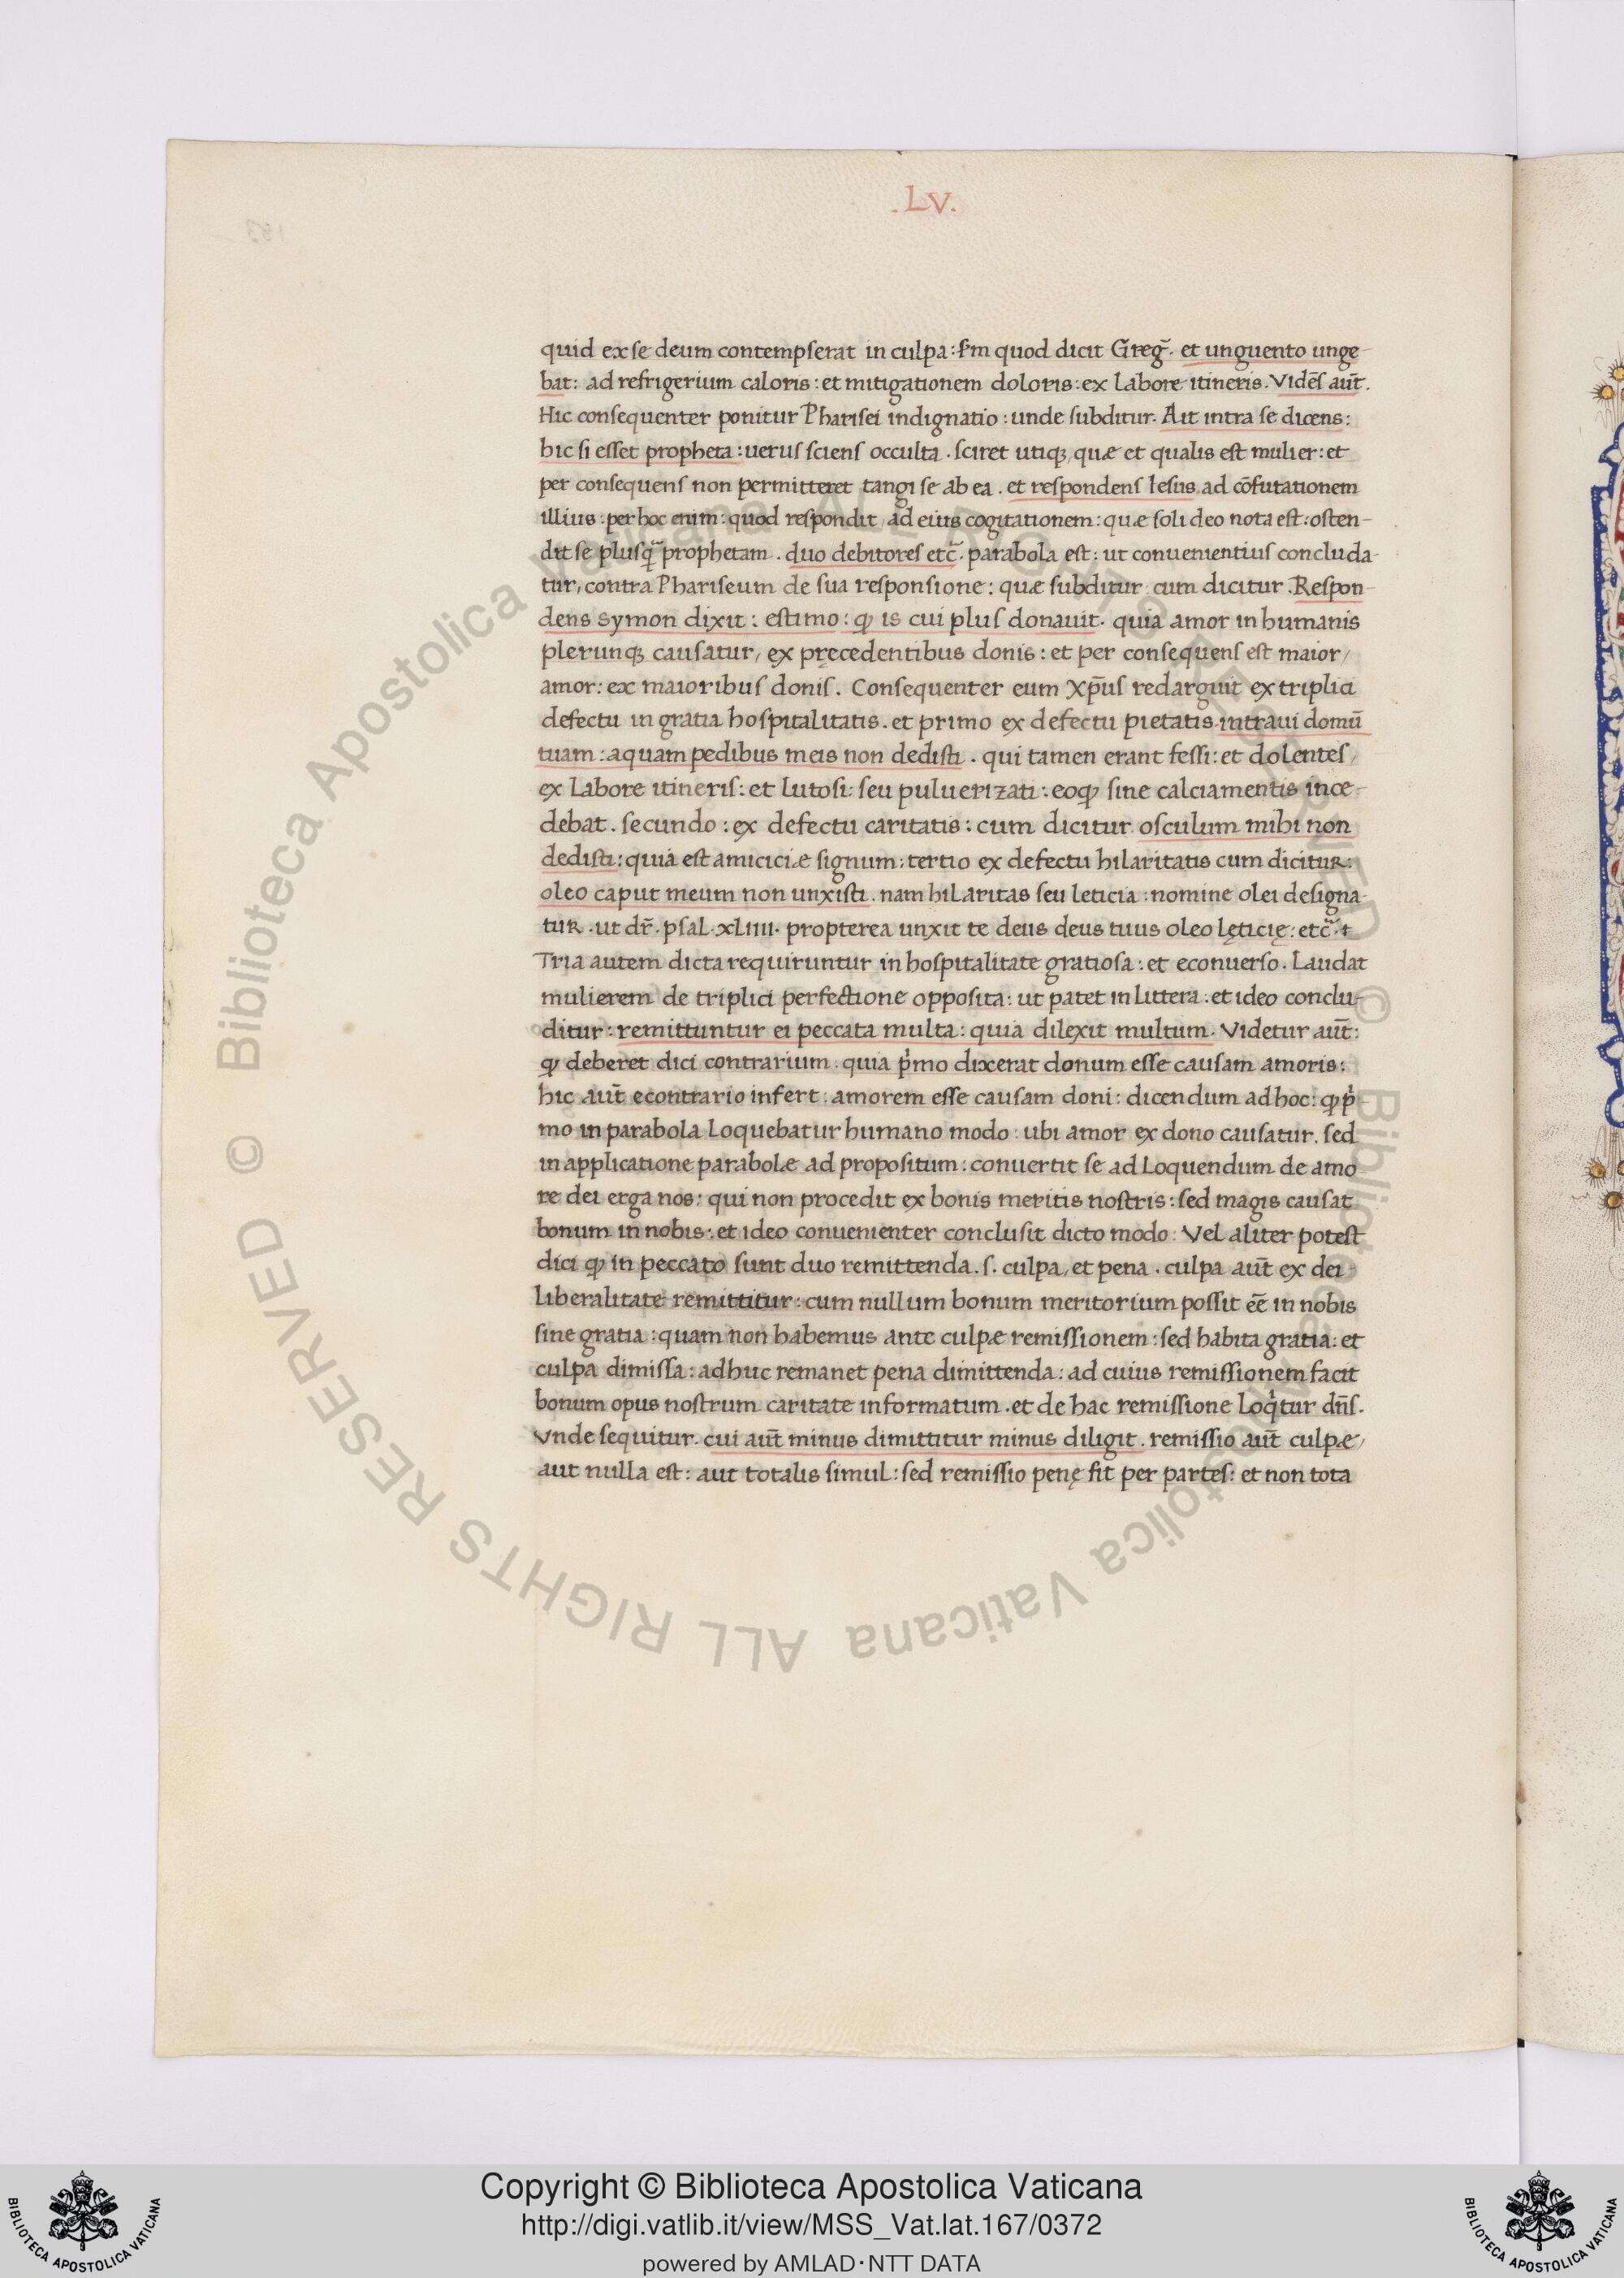 .LV.
quid ex se deum contempserat in culpa: s̄m quod dicit Greg̃. et unguento unge-
bat: ad refrigerium caloris: et mitigationem doloris: ex labore itineris. Vidēs aūt.
Hic consequenter ponitur Pharisei indignatio: unde subditur. Ait intra se dicens:
hic si esset propheta: uerus sciens occulta. sciret utiqꝫ quæ et qualis est mulier: et
per consequens non permitteret tangi se ab ea. et respondens Iesus ad cōfutationem
illius: per hoc enim: quod respondit, ad eius cogitationem: quæ soli deo nota est: osten-
dit se plusq̃ prophetam. duo debitores etc̃. parabola est: ut conuenientius concluda-
tur, contra Phariseum de sua responsione: quæ subditur cum dicitur. Respon-
dens symon dixit: estimo: ꝙ is cui plus donauit. quia amor in humanis
plerunqꝫ causatur, ex pręcedentibus donis: et per consequens est maior,
amor: ex maioribus donis. Consequenter eum Xp̄us redarguit ex triplici
defectu in gratia hospitalitatis. et primo ex defectu pietatis. intraui domū
tuam: aquam pedibus meis non dedisti. qui tamen erant fessi: et dolentes,
ex labore itineris: et lutosi: seu puluerizati: eoꝙ sine calciamentis ince-
debat. secundo: ex defectu caritatis: cum dicitur osculum mihi non
dedisti: quia est amiciciæ signum: tertio ex defectu hilaritatis cum dicitur:
oleo caput meum non unxisti. nam hilaritas seu leticia: nomine olei designa-
tur. ut dr̄. psal. xLIIII. propterea unxit te deus deus tuus oleo lęticię: etc̃.
Tria autem dicta requiruntur in hospitalitate gratiosa: et econuerso. Laudat
mulierem de triplici perfectione opposita: ut patet in littera: et ideo conclu-
ditur: remittuntur ei peccata multa: quia dilexit multum. Videtur aūt:
ꝙ deberet dici contrarium. quia pͥmo dixerat donum esse causam amoris:
hic aūt econtrario infert: amorem esse causam doni: dicendum ad hoc: ꝙ pͥ-
mo in parabola loquebatur humano modo: ubi amor ex dono causatur. sed
in applicatione parabolæ ad propositum: conuertit se ad loquendum de amo-
re dei erga nos: qui non procedit ex bonis meritis nostris: sed magis causat
bonum in nobis: et ideo conuenienter conclusit dicto modo: Vel aliter potest
dici ꝙ in peccato sunt duo remittenda. s. culpa, et pena. culpa aūt ex dei
liberalitate remittitur: cum nullum bonum meritorium possit eē in nobis
sine gratia: quam non habemus ante culpæ remissionem: sed habita gratia: et
culpa dimissa: adhuc remanet pena dimittenda: ad cuius remissionem facit
bonum opus nostrum caritate informatum. et de hac remissione loqͥtur dn̄s.
Vnde sequitur. cui aūt minus dimittitur minus diligit. remissio aūt culpæ,
aut nulla est: aut totalis simul: sed remissio penę fit per partes: et non tota
© Biblioteca Apostolica Vaticana ALL RIGHTS RESERVED
© Biblioteca Apostolica Vaticana ALL RIGHTS RESERVED
Copyright © Biblioteca Apostolica Vaticana
http://digi.vatlib.it/view/MSS_Vat.lat.167/0372
powered by AMLAD·NTT DATA
BIBLIOTECA APOSTOLICA VATICANA
BIBLIOTECA APOSTOLICA VATICANA